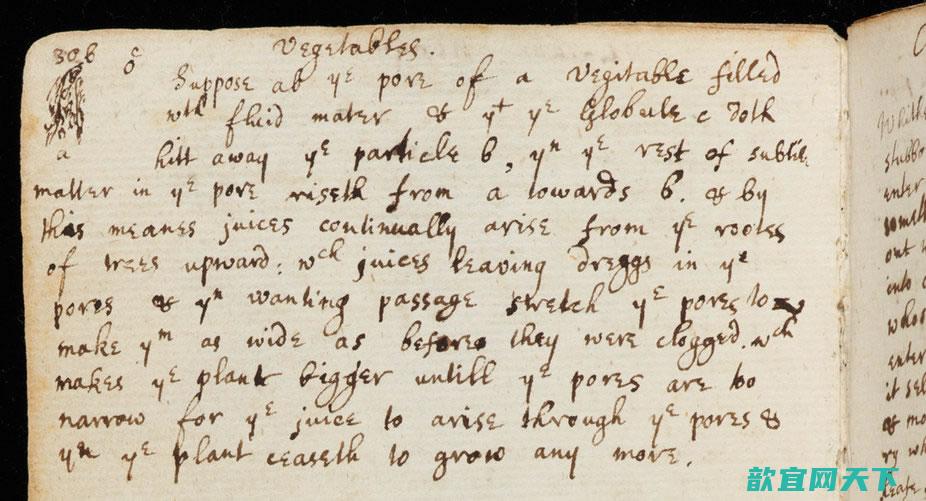 306 c Vegetables.
b
Suppose ab ye pore of a Vegitable filled
wth fluid mater & yt ye Globule c doth
a hitt away ye particle b, yn ye rest of subtile
matter in ye pore riseth from a towards b. & by
this meanes juices continually arise from ye rootes
of trees upward: wch juices leaving dreggs in ye
pores & yn wanting passage stretch ye pores to
make ym as wide as before they were clogged. wch
makes ye plant bigger untill ye pores are too
narrow for ye juice to arise through ye pores &
yn ye plant ceaseth to grow any more.
enter
out
into
whos
enter
it sel
歆宜网天下